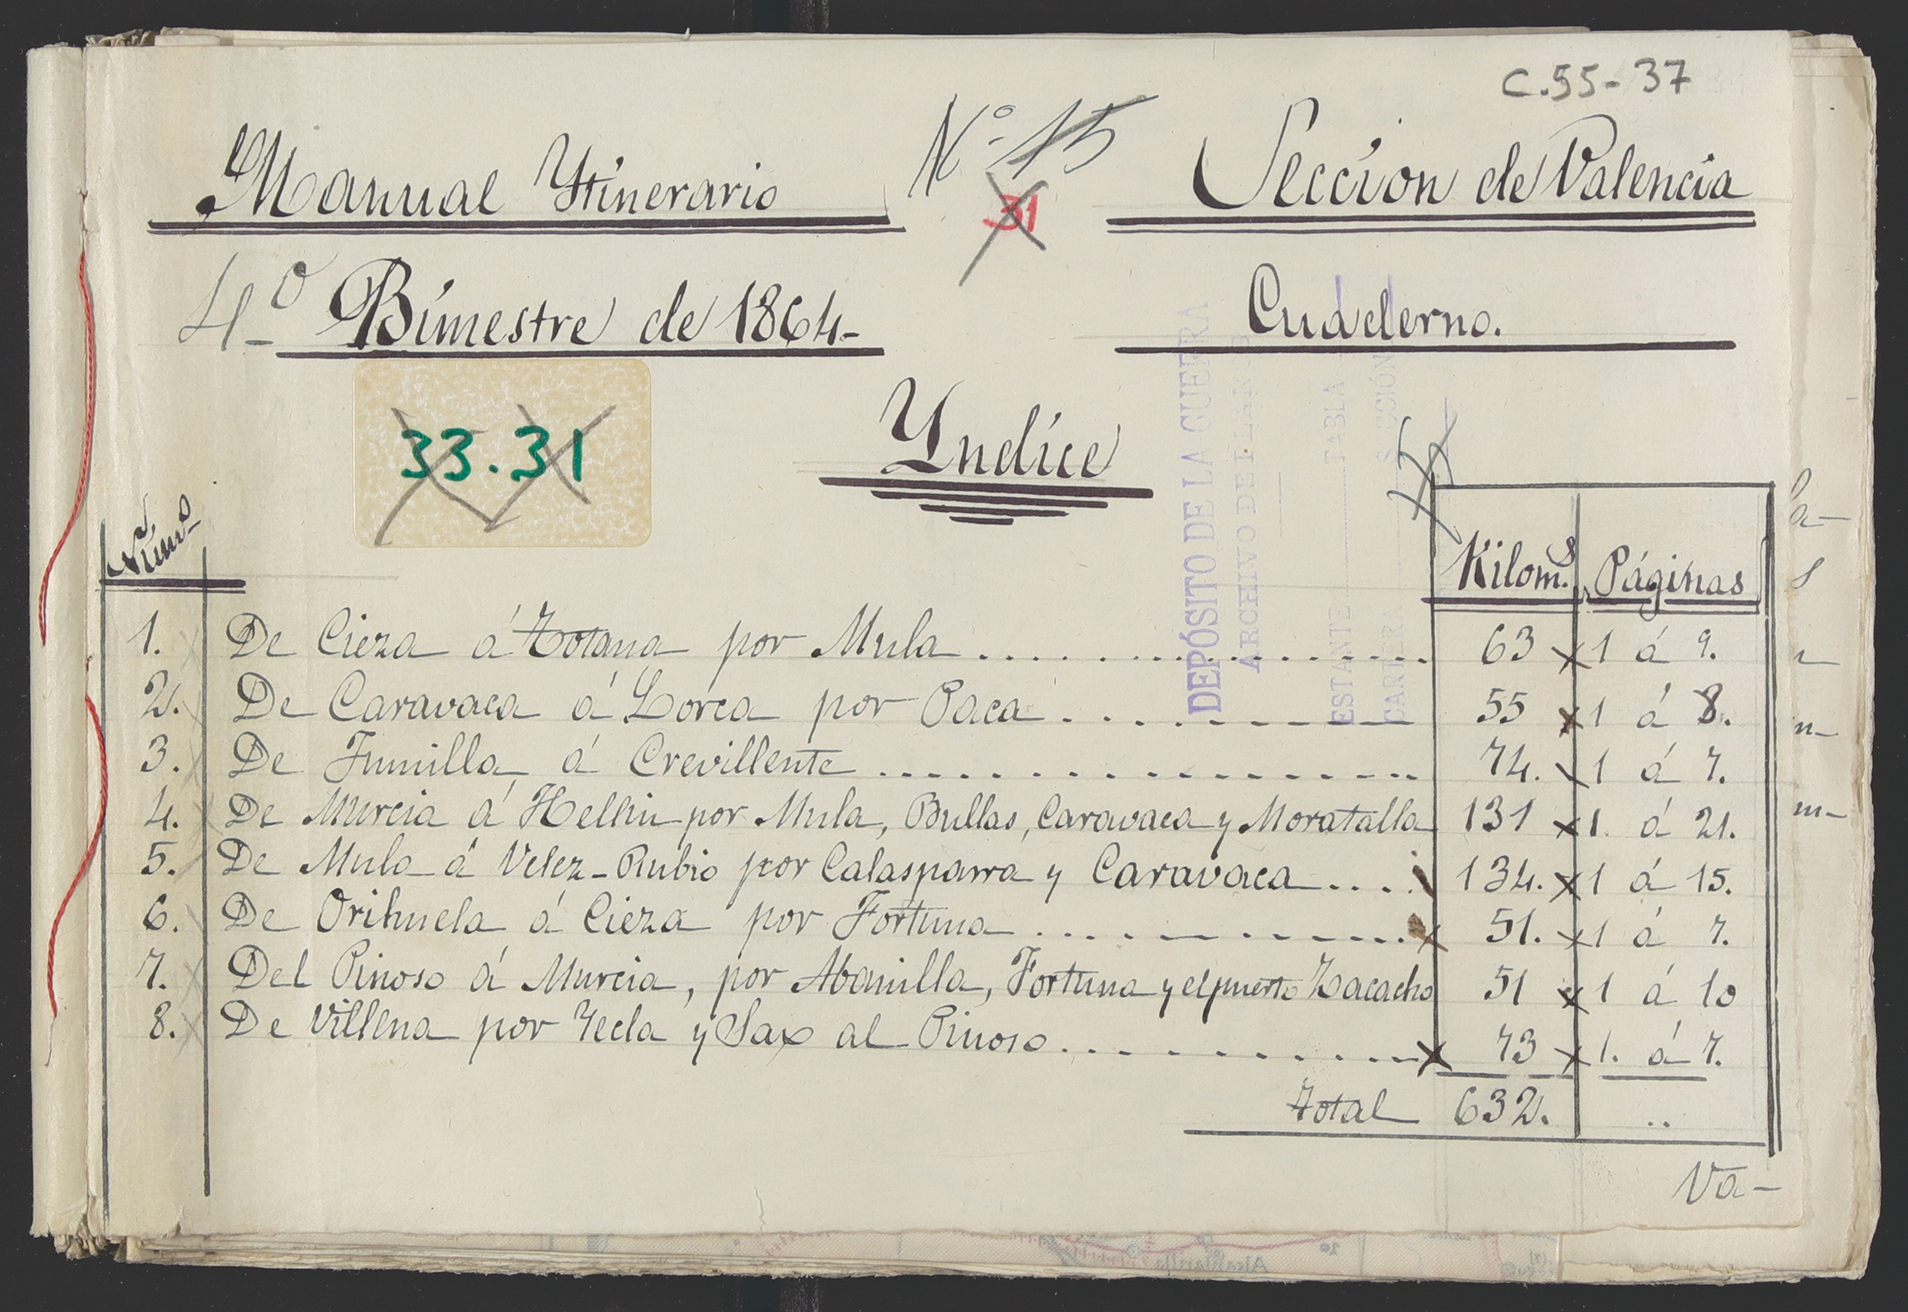 C.55-37
Manual Ytinerario
Nº 15
Seccion de Valencia
31
4º Bimestre de 1864-
Cuaderno.
33.31
Yndice
DEPÓSITO DE LA GUERRA
ARCHIVO DE PLANOS
ESTANTE TABLA
CARTERA SECCIÓN
Núms Kiloms. Páginas
1. De Cieza á Totana por Mula 63 1 á 9.
2. De Caravaca á Lorca por Paca 55 1 á 8.
3. De Jumilla á Crevillente 74. 1 á 7.
4. De Murcia á Hellin por Mula, Bullas, Caravaca y Moratalla 131 1. á 21.
5. De Mula á Velez-Rubio por Calasparra y Caravaca 134. 1 á 15.
6. De Orihuela á Cieza por Fortuna 51. 1 á 7.
7. Del Pinoso á Murcia, por Abanilla, Fortuna y el puerto Zacacho 51 1 á 10
8. De Villena por Yecla y Sax al Pinoso 73 1. á 7.
Total 632. ..
Va-
Alcantarilla